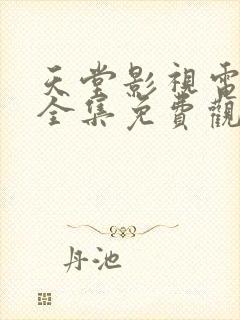 天堂影視電
全集免費觀
丹池